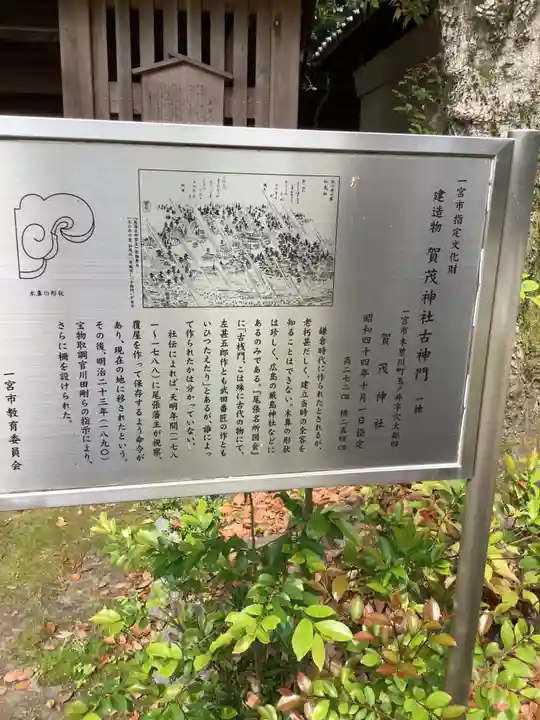 一宮市指定文化財
建造物 賀茂神社古神門 一棟
一宮市木曽川町玉ノ井字穴太部四
賀茂神社
昭和四十四年十月一日指定
高二七二㎝ 横二五四㎝
鎌倉時代に作られたとされるが、
老朽甚だしく、建立当時の全容を
知ることはできない。木鼻の形状
は珍しく、広島の厳島神社などに
あるのみである。『尾張名所図会』
に「古桟門、こは殊に古代の物にて、
左甚五郎作とも武田番匠の作とも
いひつたへたり」とあるが、誰によっ
て作られたかは分かっていない。
社伝によれば、天明年間(一七八
一~一七八八)に尾張藩主が視察、
覆屋を作って保存するよう命令が
あり、現在の地に移されたという。
その後、明治二十三年(一八九〇)
宝物取調官川田剛らの指示により、
さらに柵を設けられた。
一宮市教育委員会
木鼻の形状